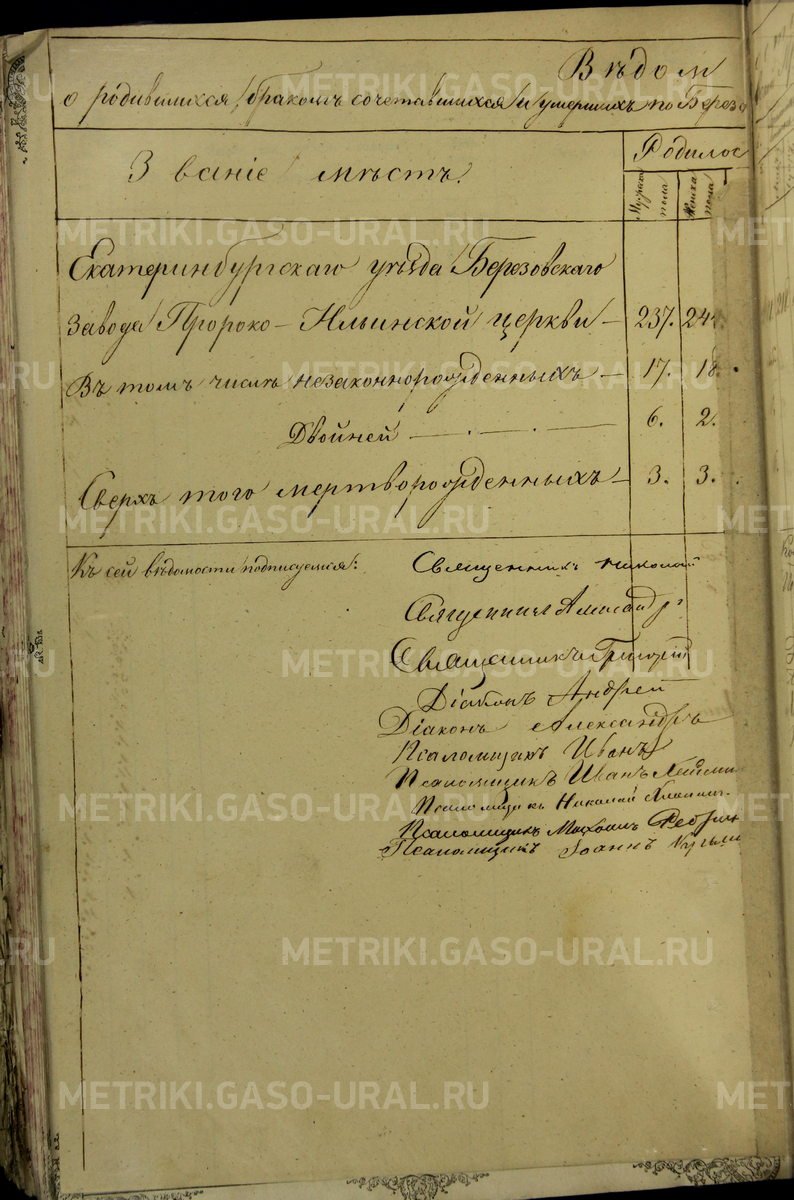 Вѣдом
о родившихся, бракомъ сочетавшихся и умершихъ по Березо
Званіе мѣстъ.
Родилос
Мужеска пола
Женска пола
Екатеринбургскаго уѣзда Березовскаго
завода Пророко-Ильинской церкви — 237. 24
Въ томъ числѣ незаконнорожденныхъ — 17. 18.
Двойней — 6. 2.
Сверхъ того мертворожденныхъ — 3. 3.
Къ сей вѣдомости подписуемся:
Священникъ Николай
Священникъ Александръ
Священникъ Григорій
Діаконъ Андрей
Діаконъ Александръ
Псаломщикъ Иванъ
Псаломщикъ Иванъ
Псаломщикъ Николай
Псаломщикъ
Псаломщикъ Іоаннъ
METRIKI.GASO-URAL.RU